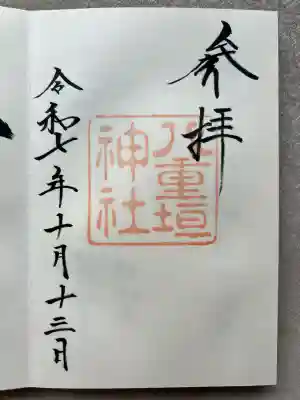 奉拝
八重垣
神社
令和七年十月十三日